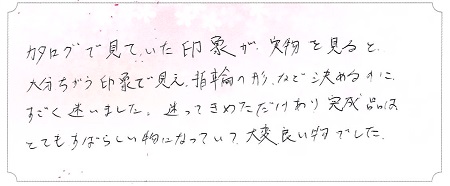 カタログで見ていた印象が、実物を見ると、
大分ちがう印象で見え、指輪の形、など決めるのに、
すごく迷いました。迷ってきめただけあり完成品は
とてもすばらしい物になっていて大変良い物でした。